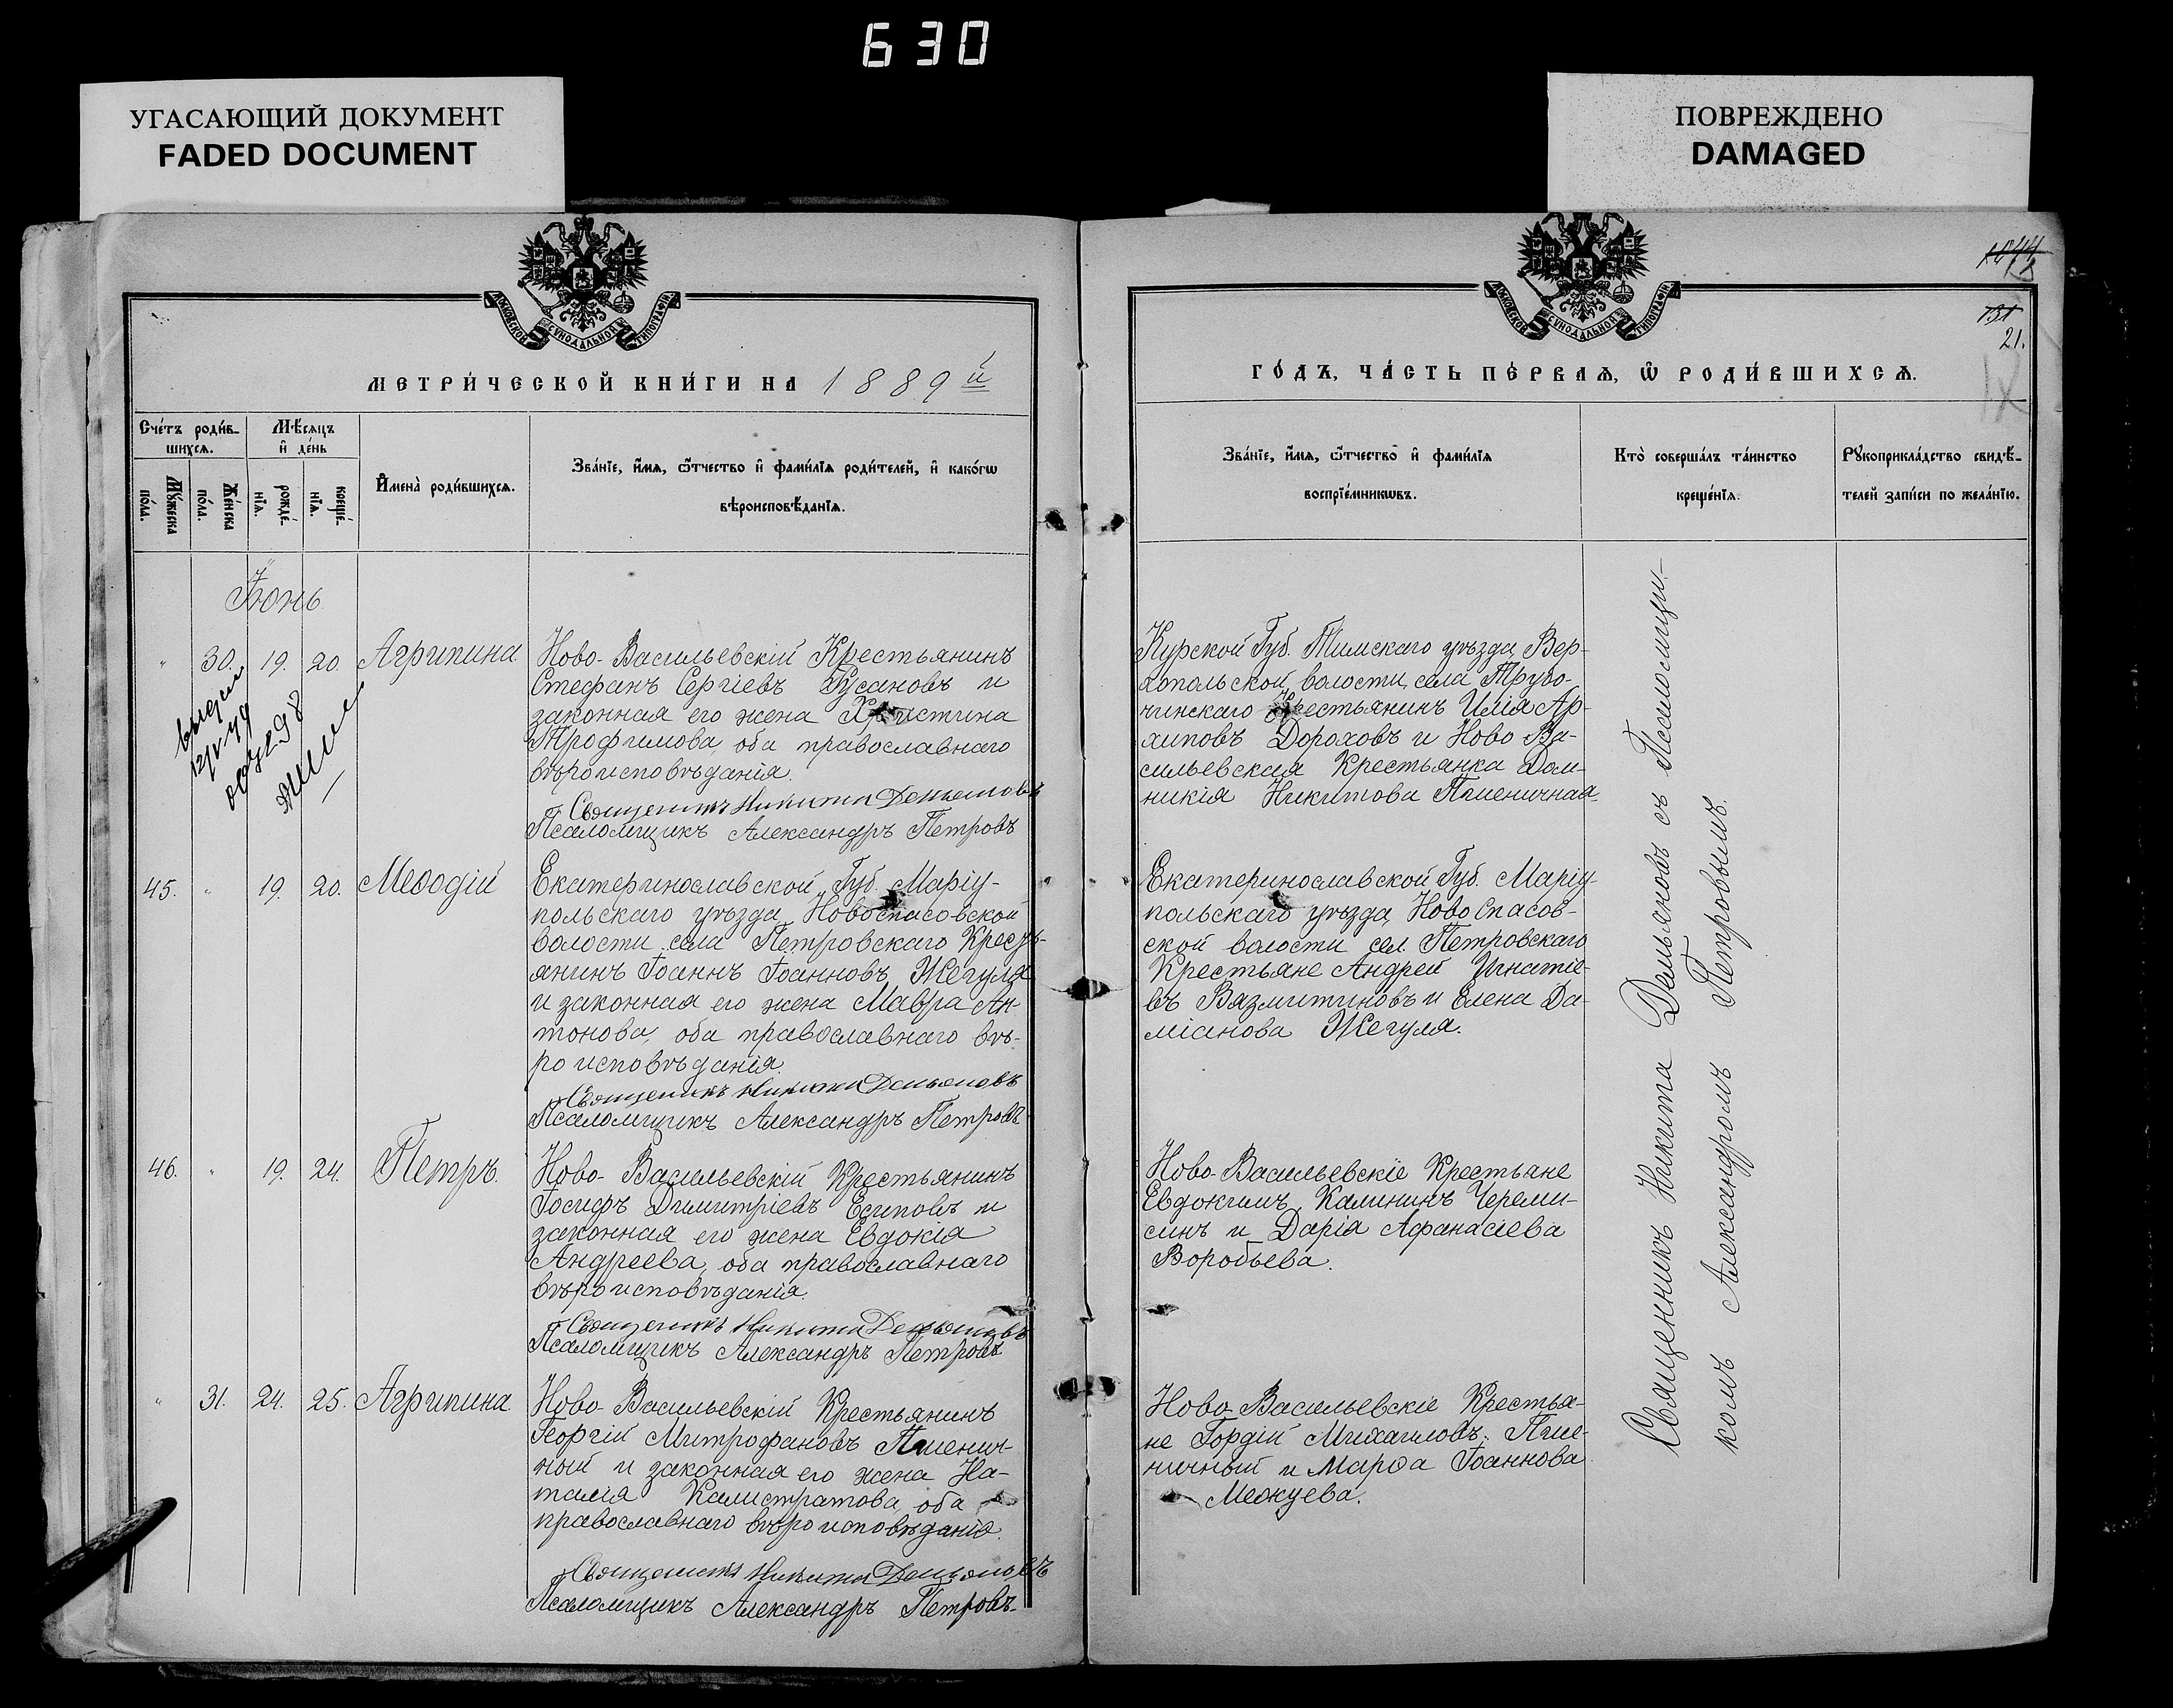 630
УГАСАЮЩИЙ ДОКУМЕНТ
FADED DOCUMENT
ПОВРЕЖДЕНО
DAMAGED
МОСКОВСКОЙ СѴНОДАЛЬНОЙ ТИПОГРАФІИ
МЕТРИ́ЧЕСКОЙ КНИ́ГИ НА 1889й
Сче́тъ роди́в-
шихсѧ.
Мѣ́сѧцъ
и҆ де́нь
Мꙋ́жеска
по́ла.
Же́нска
по́ла.
рожде́-
нїѧ.
креще́-
нїѧ.
И҆мена̀ роди́вшихсѧ.
Зва́нїе, и҆́мѧ, ѻ҆́тчество и҆ фами́лїѧ роди́телей, и҆ како́гѡ
вѣроисповѣ́данїѧ.
Іюнь
" 30. 19. 20. Агрипина
Ново-Васильевскій Крестьянинъ
Стефанъ Сергіевъ Русановъ и
законная его жена Христина
Трофимова, оба православнаго
вѣроисповѣданія.
Священникъ Никита Демьяновъ
Псаломщикъ Александръ Петровъ
45. " 19. 20. Меѳодій
Екатеринославской Губ. Маріу-
польскаго уѣзда, Новоспасовской
волости села Петровскаго Кресть-
янинъ Іоаннъ Іоанновъ Жегуля
и законная его жена Мавра Ан-
тонова, оба православнаго вѣ-
роисповѣданія.
Священникъ Никита Демьяновъ
Псаломщикъ Александръ Петровъ
46. " 19. 24. Петръ.
Ново-Васильевскій Крестьянинъ
Іосифъ Димитріевъ Есиповъ и
законная его жена Евдокія
Андреева, оба православнаго
вѣроисповѣданія.
Священникъ Никита Демьяновъ
Псаломщикъ Александръ Петровъ
" 31. 24. 25. Агрипина
Ново-Васильевскій Крестьянинъ
Георгій Митрофановъ Пшенич-
ный и законная его жена На-
талія Калистратова, оба
православнаго вѣроисповѣданія.
Священникъ Никита Демьяновъ
Псаломщикъ Александръ Петровъ
МОСКОВСКОЙ СѴНОДАЛЬНОЙ ТИПОГРАФІИ
21.
ГО́ДЪ, ЧА́СТЬ ПЕ́РВАѦ, Ѡ҆ РОДИ́ВШИХСѦ.
Зва́нїе, и҆́мѧ, ѻ҆́тчество и҆ фами́лїѧ
воспрїе́мникѡвъ.
Кто̀ соверша́лъ та́инство
креще́нїѧ.
Рꙋкоприкла́дство свидѣ́-
телей за́писи по жела́нїю.
Курской Губ. Тимскаго уѣзда, Вер-
хопольской волости, села Трубо-
чинскаго Крестьянинъ Илія Ар-
хиповъ Дороховъ и Ново-Ва-
сильевская Крестьянка Дом-
никія Никитова Пшеничная.
Екатеринославской Губ. Маріу-
польскаго уѣзда, НовоСпасов-
ской волости сел. Петровскаго
Крестьяне Андрей Игнатіе-
въ Вазмитиновъ и Елена Да-
міанова Жегуля.
Ново-Васильевскіе Крестьяне
Евдокимъ Калининъ Череми-
синъ и Дарія Афанасіева
Воробьева.
Ново-Васильевскіе Крестья-
не Гордій Михаиловъ Пше-
ничный и Марѳа Іоаннова
Межуева.
Священникъ Никита Демьяновъ съ Псаломщи-
комъ Александромъ Петровымъ.